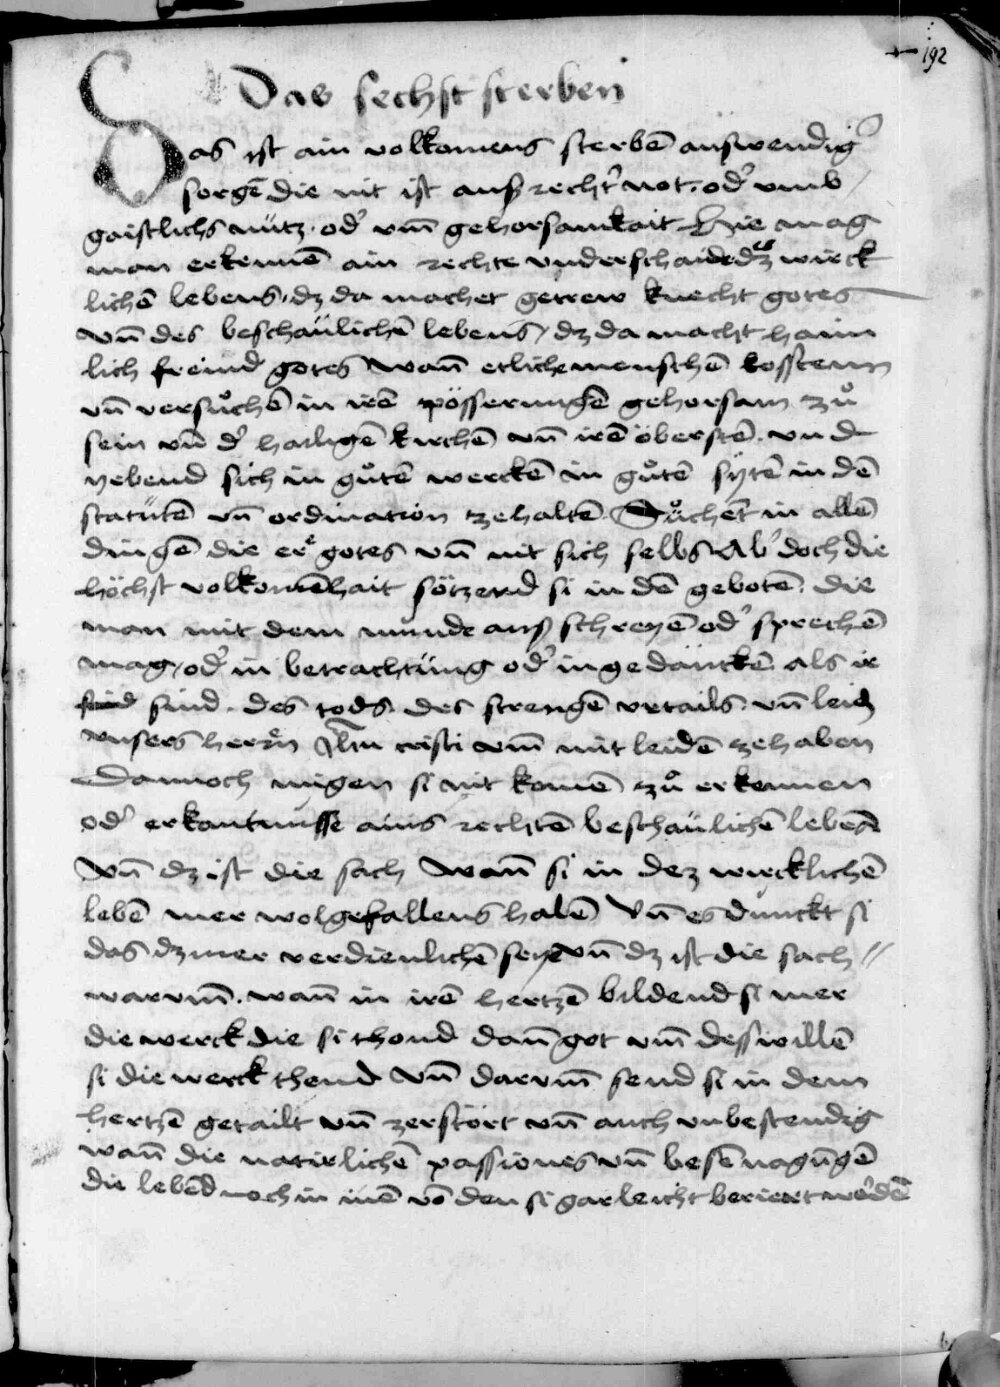 192
Das sechst sterben
Das ist ain volkomens sterbē auswendigʼ
sorgē die nit ist ausz rechtʼ not. odʼ vmb
gaistlichs nütz. odʼ vm̄ gehorsamkait Hie mag
man erkennē ain rechte vnderschaide dz wirck
lichē lebens, dz da machet getrew knecht gotes
vn̄ des beschaülichē lebens, dz da macht haim
lich freind gotes Wan̄ etliche menschē
vn̄ versůchē in irē pösserungē gehorsam zů
sein vn̄ dʼ hailigē kirchē vn̄ irē öberstē. vnd
yebend sich in gůtē werckē in gůtē sytē in dē
statutē vn̄ ordination zehaltē Sůchēt in allē
dingē die ere gotes vn̄ nit sich selbs Abʼ doch die
höchst volkomēhait sötzend si in dē gebotē. die
man mit dem munde ausz schreyē odʼ sprechē
mag, odʼ in betrachtüng odʼ in gedänckē als ir
sind. des tods. des strengē vrtails. vn̄ leidʒ
vnsers herrn̄ Jh̄u cristi vm̄ mit leidē zehaben
Dannoch mügen si nit komē zů erkennen
odʼ erkantnusse ains rechtē beschaülichē lebēs
Vn̄ dz ist die sach Wan̄ si in dez wircklichē
lebē mer wolgefallens habē Vn̄ es dunckt si
das dz mer verdienlichē seye vn̄ dz ist die sach //
warvm̄. wan̄ in irē hertzē bildend si mer
die werck die si thond dan̄ got vm̄ des willē
si die werck thend Vn̄ darvm̄ send si in dem
hertzē getailt vn̄ zerstört vn̄ auch vnbestendig
wan̄ die natirlichē passiones vn̄ besē nagūgē
die lebēd noch in inē vō den si gar leicht beriert werdē